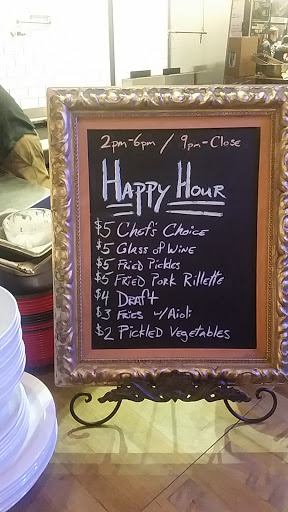 2pm-6pm / 9pm-Close
Happy Hour
$5 Chef's Choice
$5 Glass of Wine
$5 Fried Pickles
$5 Fried Pork Rillette
$4 Draft
$3 Fries w/Aioli
$2 Pickled Vegetables